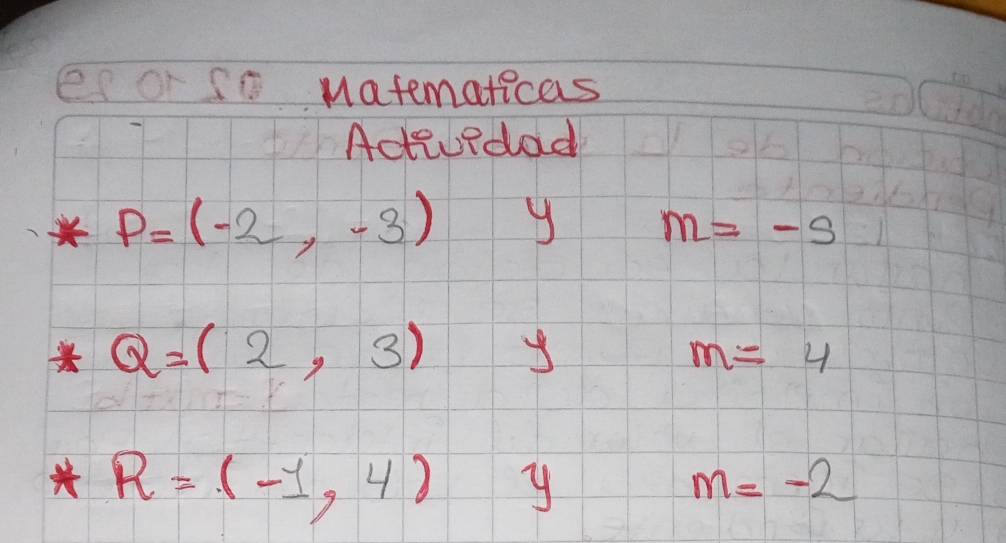 Matematicas
Actividad
* P=(-2, -3) y m= -5
* Q=(2, 3) y m= 4
* R=(-1, 4) y m= -2